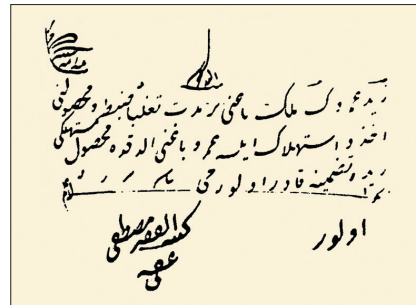 زيد عمروك ملك باغنى بر مدت تغلبا ضبط و محصولنى
اخذ و استهلاك ايلسه عمرو باغنى الدقده محصول مستهلكى
زيده تضمينه قادر اولورمى
اولور
كتبه الفقير مصطفى
عفى